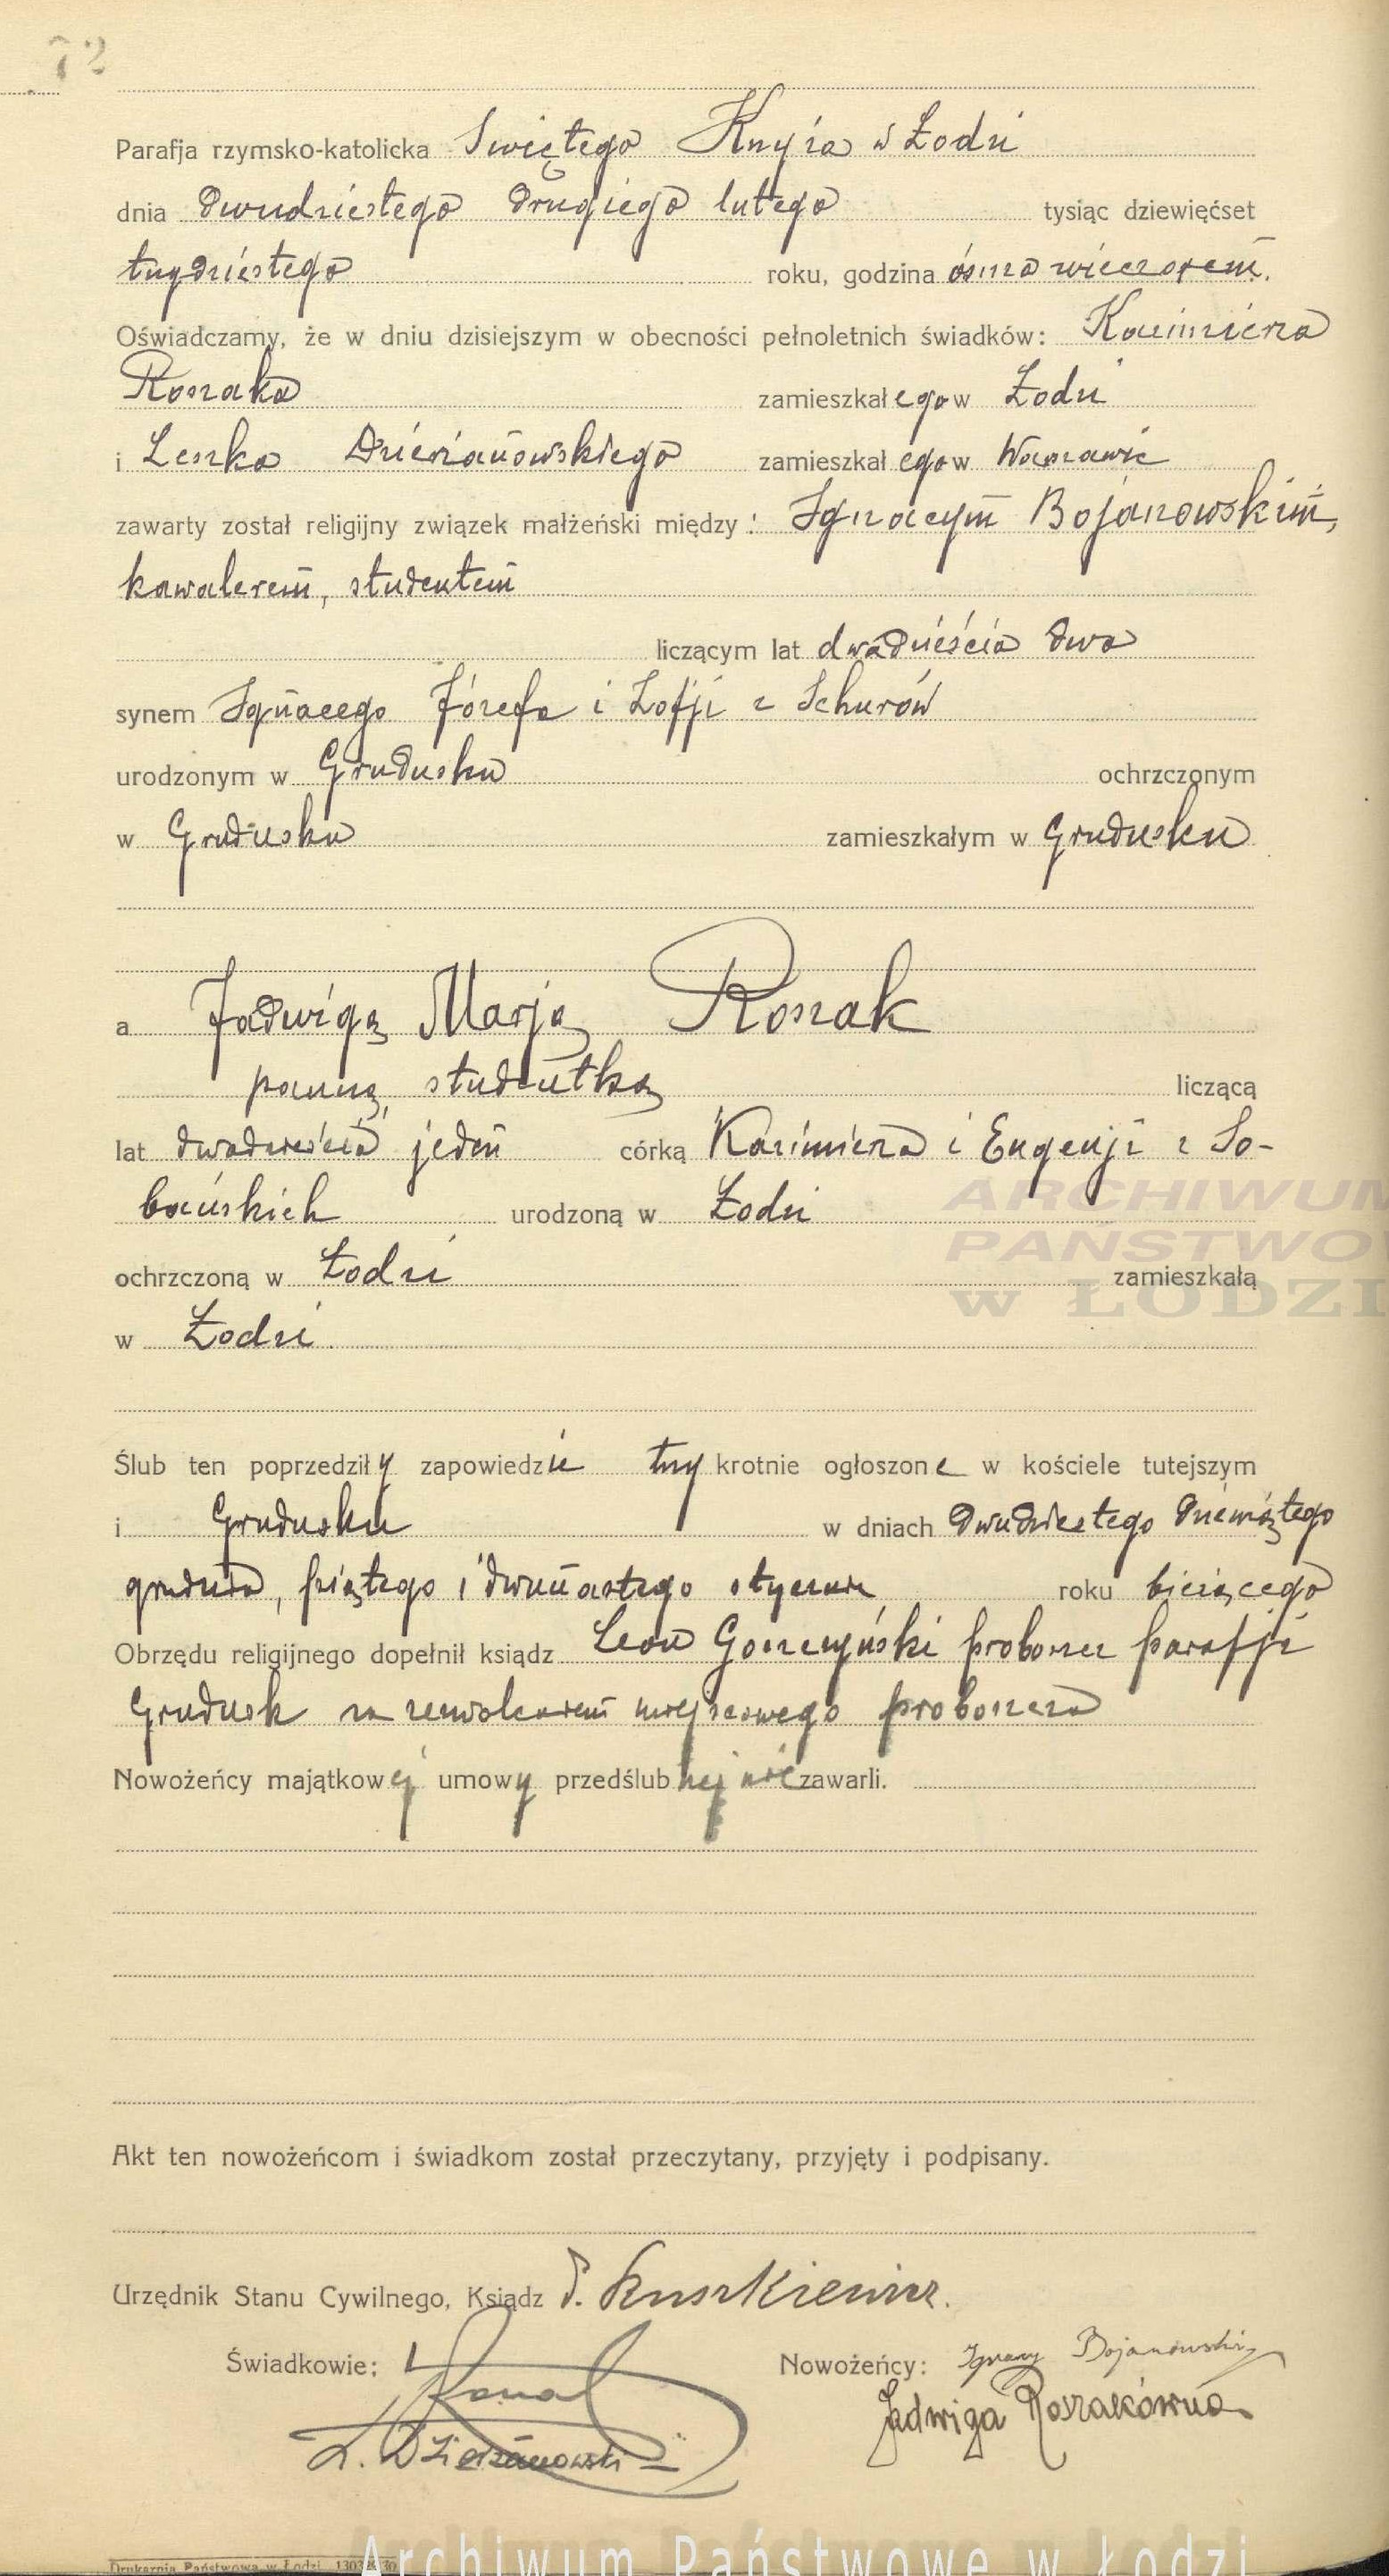 72
Parafja rzymsko-katolicka Świętego Krzyża w Łodzi
dnia dwudziestego drugiego lutego tysiąc dziewięćset
trzydziestego roku, godzina ósma wieczorem.
Oświadczamy, że w dniu dzisiejszym w obecności pełnoletnich świadków: Kazimierza
Roszaka zamieszkałego w Łodzi
i Leszka Dzierżanowskiego zamieszkałego w Warszawie
zawarty został religijny związek małżeński między: Ignacym Bojanowskim,
kawalerem, studentem
liczącym lat dwadzieścia dwa
synem Ignacego Józefa i Zofji z Schurów
urodzonym w Grudusku ochrzczonym
w Grudusku zamieszkałym w Grudusku
a Jadwigą Marją Roszak
panną, studentką liczącą
lat dwadzieścia jeden córką Kazimierza i Eugenji z So-
bańskich urodzoną w Łodzi
ochrzczoną w Łodzi zamieszkałą
w Łodzi.
Ślub ten poprzedziły zapowiedzie trzykrotnie ogłoszone w kościele tutejszym
i Grudusku w dniach dwudziestego dziewiątego
grudnia, piątego i dwunastego stycznia roku bieżącego
Obrzędu religijnego dopełnił ksiądz Leon Goszczyński proboszcz parafji
Grudusk za zezwoleniem miejscowego proboszcza
Nowożeńcy majątkowej umowy przedślubnej nie zawarli.
Akt ten nowożeńcom i świadkom został przeczytany, przyjęty i podpisany.
Urzędnik Stanu Cywilnego, Ksiądz
Świadkowie: Nowożeńcy: Ignacy Bojanowski
Jadwiga Roszakówna
L. Dzierżanowski
Drukarnia Państwowa w Łodzi
ARCHIWUM
PAŃSTWO
W ŁODZI
Archiwum Państwowe w Łodzi